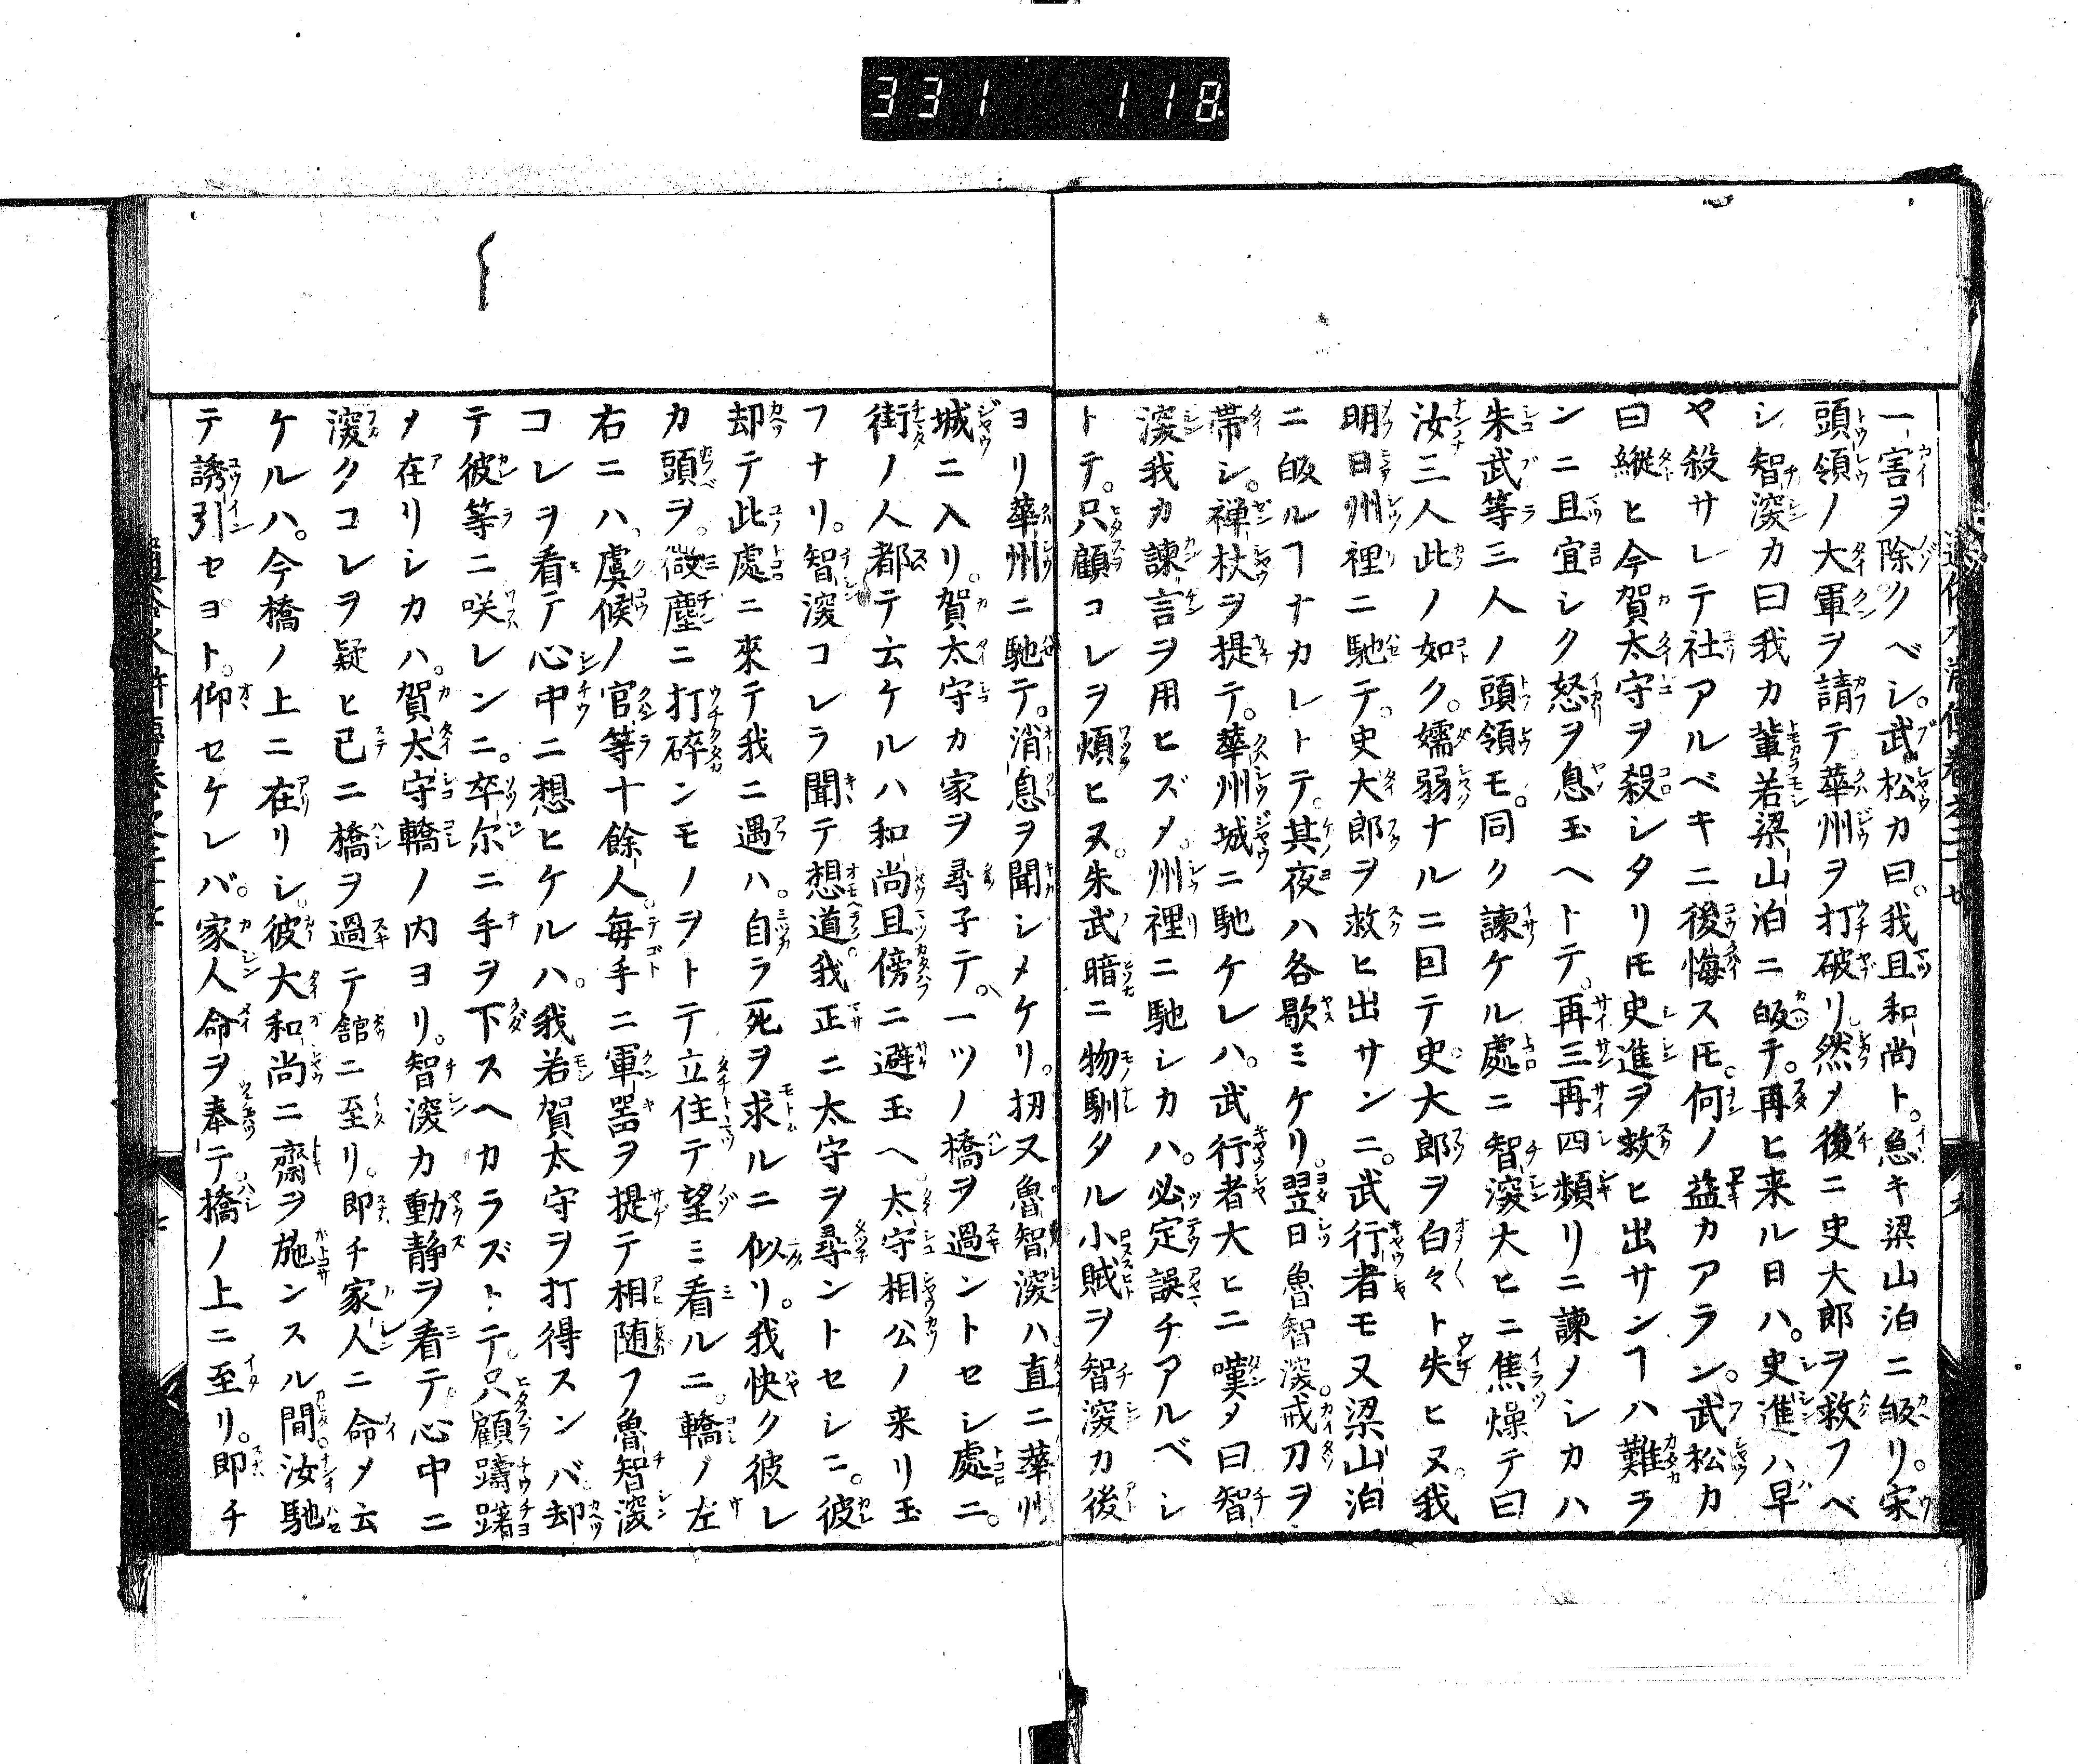 331 118
一害ヲ除クベシ。武松カ曰。我且和尚ト。急キ梁山泊ニ皈リ。宋
頭領ノ大軍ヲ請テ華州ヲ打破リ。然メ後ニ史大郎ヲ救フベ
シ。智深カ曰我カ輩若梁山泊ニ皈テ。再ヒ来ル日ハ。史進ハ早
ヤ殺サレテ社アルベキニ後悔ストモ。何ノ益カアラン。武松カ
曰縦ヒ今賀太守ヲ殺シタリトモ史進ヲ救ヒ出サンヿハ難ラ
ンニ且宜シク怒ヲ息玉ヘトテ。再三再四頻リニ諫メシカハ
朱武等三人ノ頭領モ。同ク諫ケル處ニ智深大ヒニ焦燥テ曰
汝三人此ノ如ク。懦弱ナルニ回テ史大郎ヲ白々ト失ヒヌ。我
明日州裡ニ馳テ。史大郎ヲ救ヒ出サンニ。武行者モ又梁山泊
ニ皈ルヿナカレトテ。其夜ハ各歇ミケリ。翌日魯智深。戒刀ヲ
帯シ。禅杖ヲ提テ。華州城ニ馳ケレハ。武行者大ヒニ嘆メ曰智
深我カ諫言ヲ用ヒズメ。州裡ニ馳シカハ。必定誤チアルベシ
トテ。只顧コレヲ煩ヒヌ。朱武暗ニ物馴タル小賊ヲ智深カ後
ヨリ華州ニ馳テ。消息ヲ聞シメケリ。扨又魯智深ハ直ニ華州
城ニ入リ。賀太守カ家ヲ尋子テ。一ツノ橋ヲ過ントセシ處ニ。
街ノ人都テ云ケルハ和尚且傍ニ避玉ヘ。太守相公ノ来リ玉
フナリ。智深コレラ聞テ想道我正ニ太守ヲ尋ントセシニ。彼
却テ此處ニ來テ我ニ遇ハ。自ラ死ヲ求ルニ似リ。我快ク彼レ
カ頭ヲ。微塵ニ打碎ンモノヲトテ立住テ望ミ看ルニ。轎ノ左
右ニハ虞候ノ官等十餘人。毎手ニ軍噐ヲ提テ相随フ魯智深
コレヲ看テ心中ニ想ヒケルハ。我若賀太守ヲ打得スンバ却
テ彼等ニ咲レンニ。卒尓ニ手ヲ下スヘカラズトテ。只顧躊躇
メ在リシカハ。賀太守轎ノ内ヨリ。智深カ動静ヲ看テ心中ニ
深クコレヲ疑ヒ已ニ橋ヲ過テ舘ニ至リ。即チ家人ニ命メ云
ケルハ。今橋ノ上ニ在リシ。彼大和尚ニ齋ヲ施ンスル間。汝馳
テ誘引セヨト。仰セケレバ。家人命ヲ奉テ。橋ノ上ニ至リ。即チ